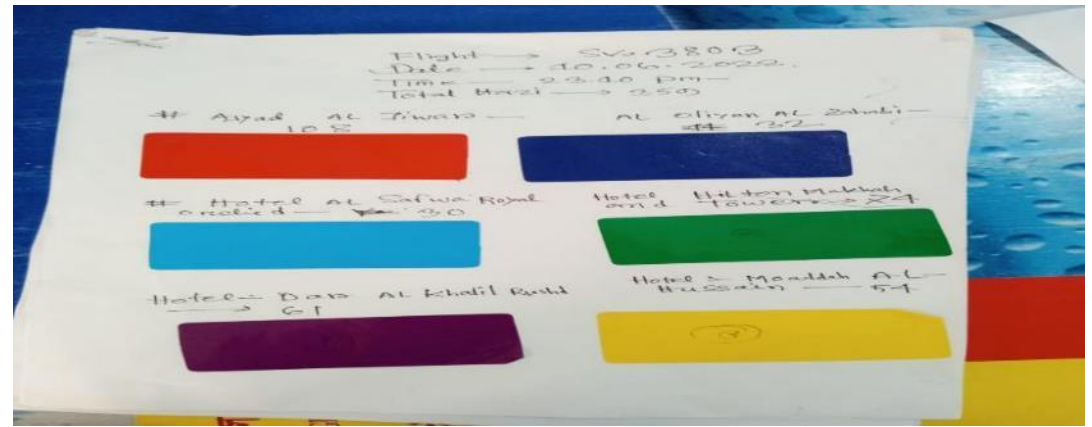 Flight → SV-3803
Date → 10.06.2022.
Time — 23.10 pm
Total Hazi → 350
# Ajyad AL Jiwar —
108
AL Oliyan AL
## 32
# Hotel AL Safwa Royal
orchid — 30
Hotel Hilton Makkah
and towers →
Hotel :- Dar AL Khalil Rushd
→ 61
Hotel :- Moaddah AL-
Hussain — 54